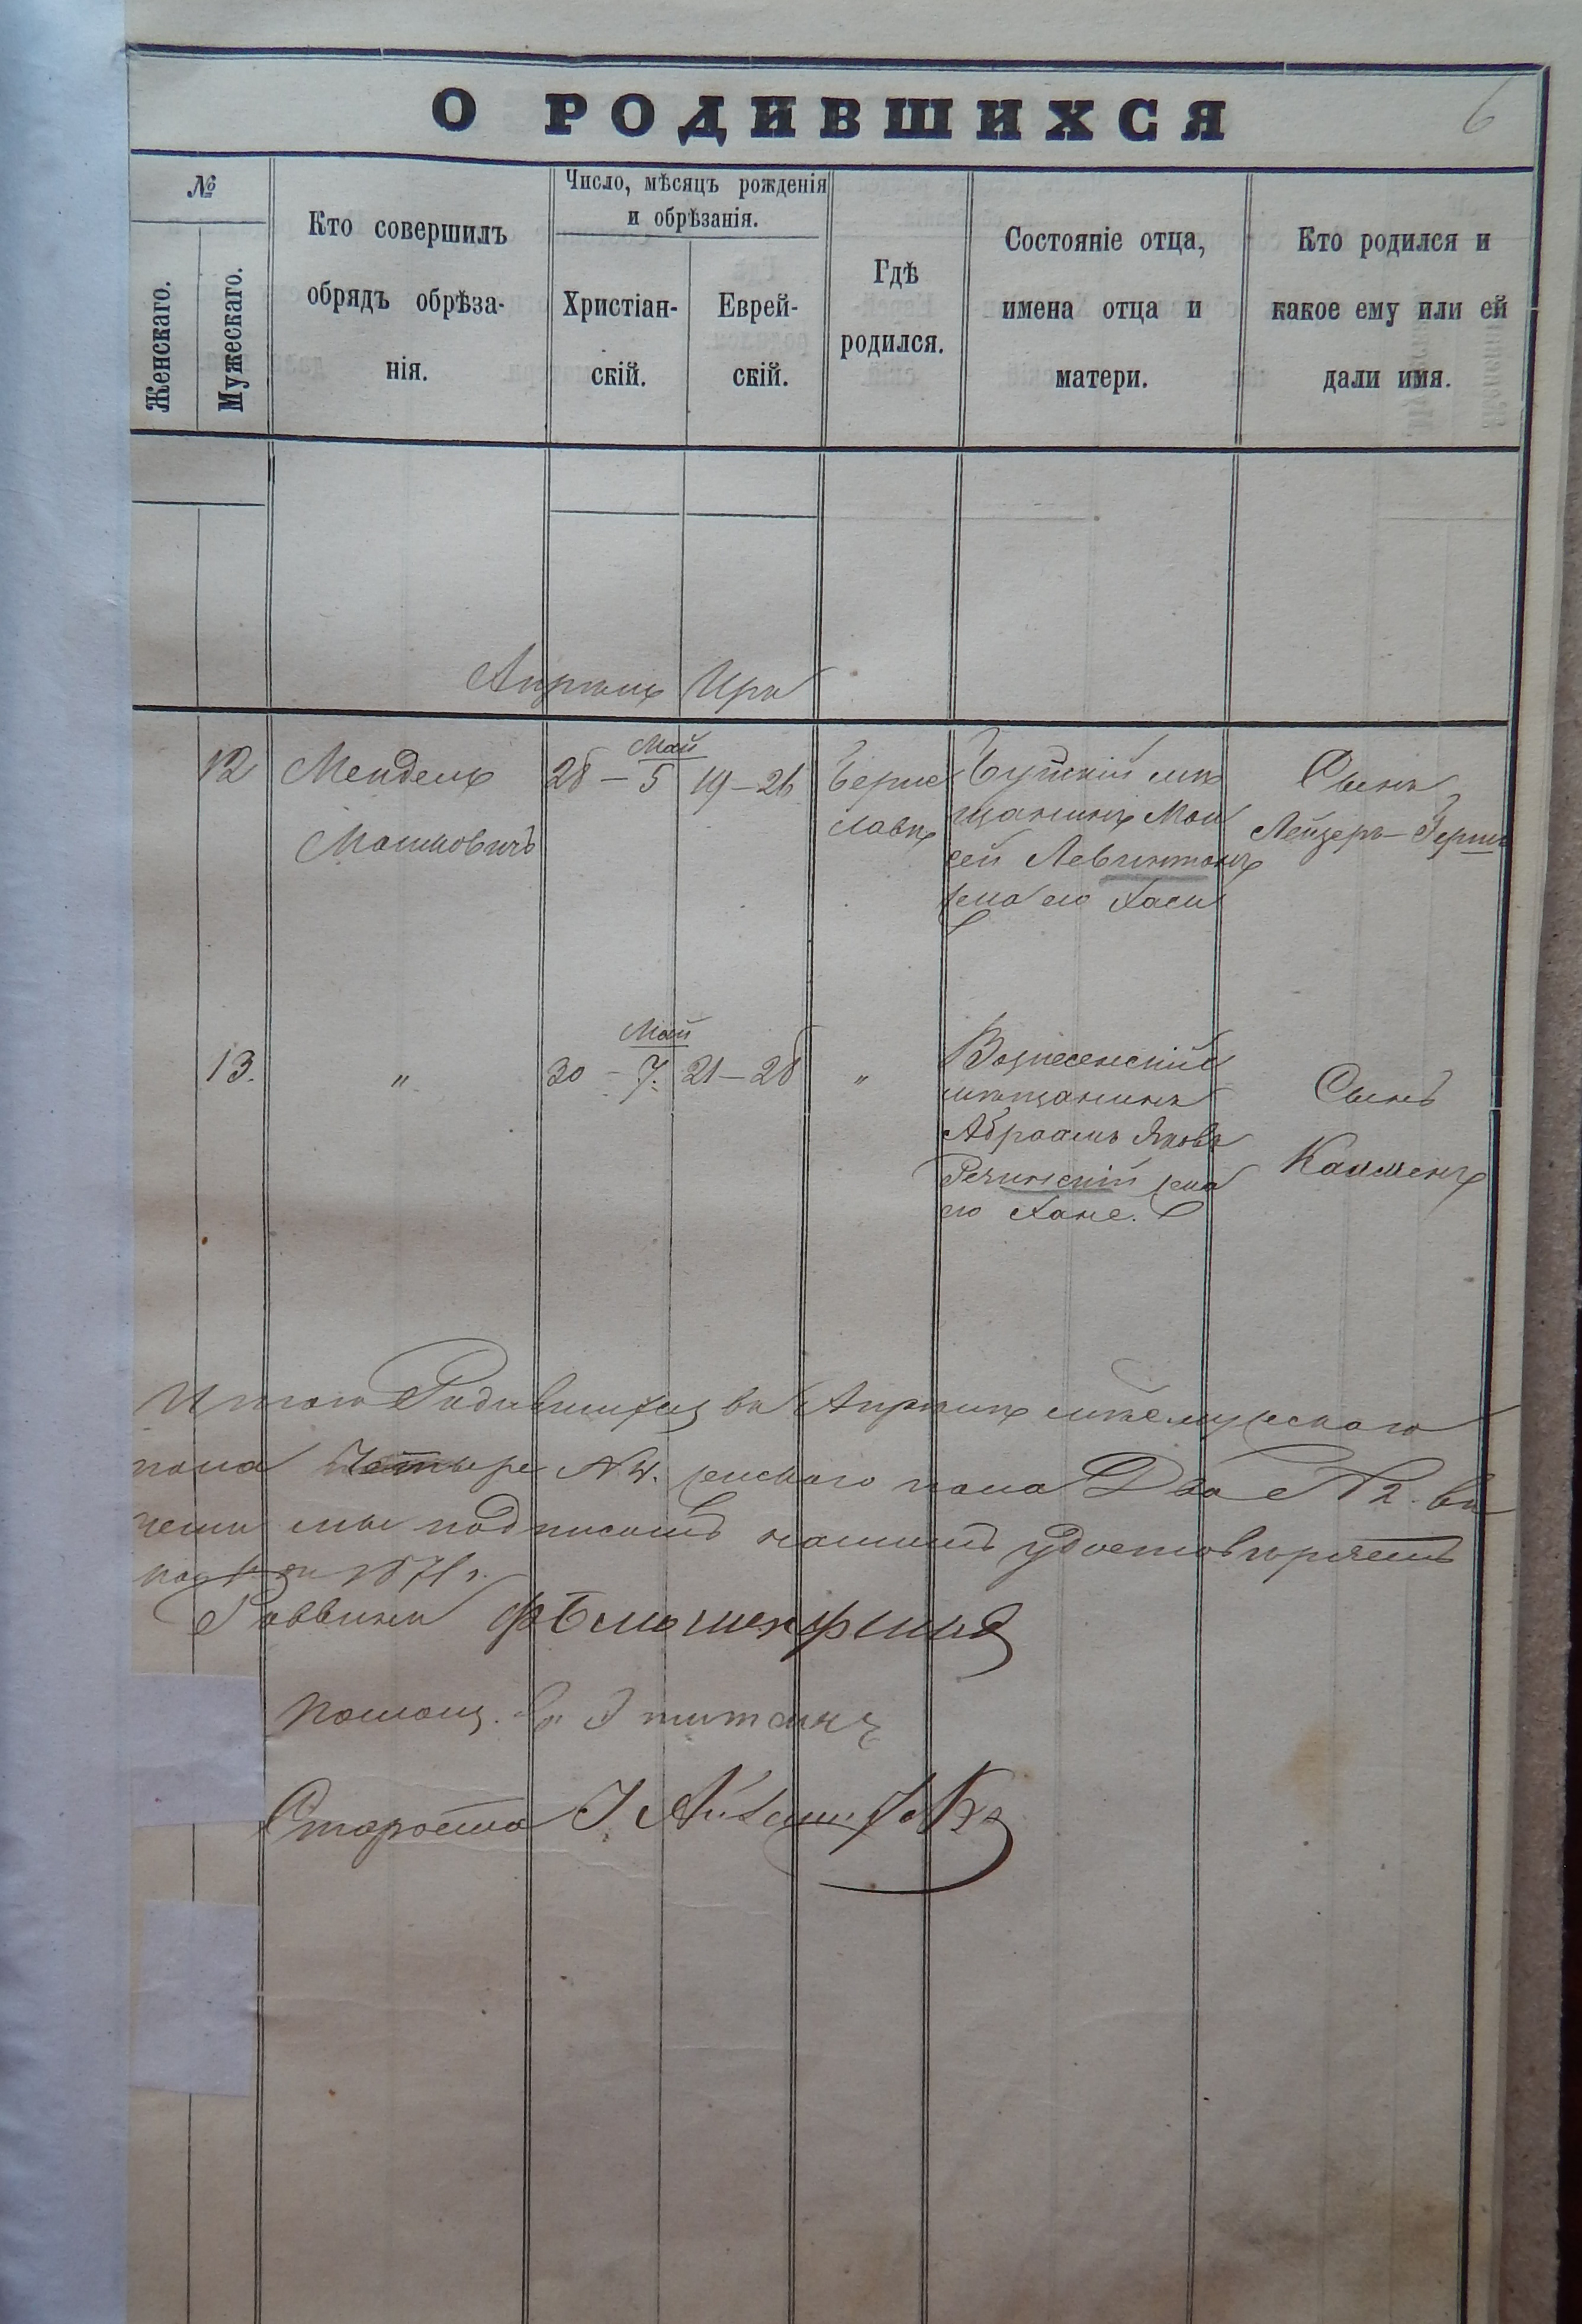 О РОДИВШИХСЯ
6
№
Женскаго.
Мужескаго.
Кто совершилъ
обрядъ обрѣза-
нія.
Число, мѣсяцъ рожденія
и обрѣзанія.
Христіан-
скій.
Еврей-
скій.
Гдѣ
родился.
Состояніе отца,
имена отца и
матери.
Кто родился и
какое ему или ей
дали имя.
Апрель Иръ
12
Мендель
Мошковичъ
Май
28 – 5
19 – 26
Берис
лавѣ
мѣ
щанинъ Мои
сей Левинтонъ
жена его Хася
Сынъ
Лейзеръ-Герш
13.
"
Май
30 – 7.
21 – 28
"
Вознесенскій
мѣщанинъ
Абраамъ Яковъ
Речинскій жена
его Хане.
Сынъ
Калменъ
Итого Родившихся въ Апрель мѣс. мужескаго
пола Четыре №4. женскаго пола Два №2. въ
чемъ мы подписомъ нашимъ удостовѣряемъ
1871 г.
Раввинъ
Помощ.
Староста